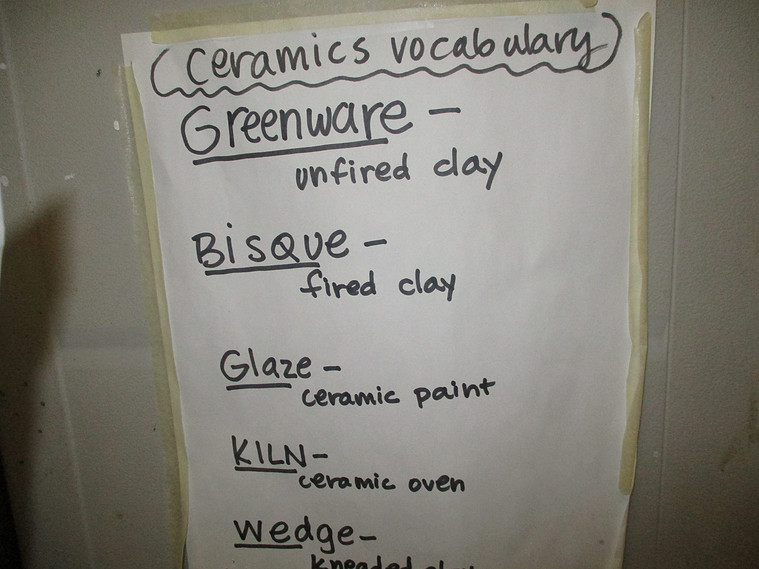 (Ceramics vocabulary)
Greenware -
unfired clay
Bisque -
fired clay
Glaze -
ceramic paint
KILN -
ceramic oven
wedge -
kneaded clay